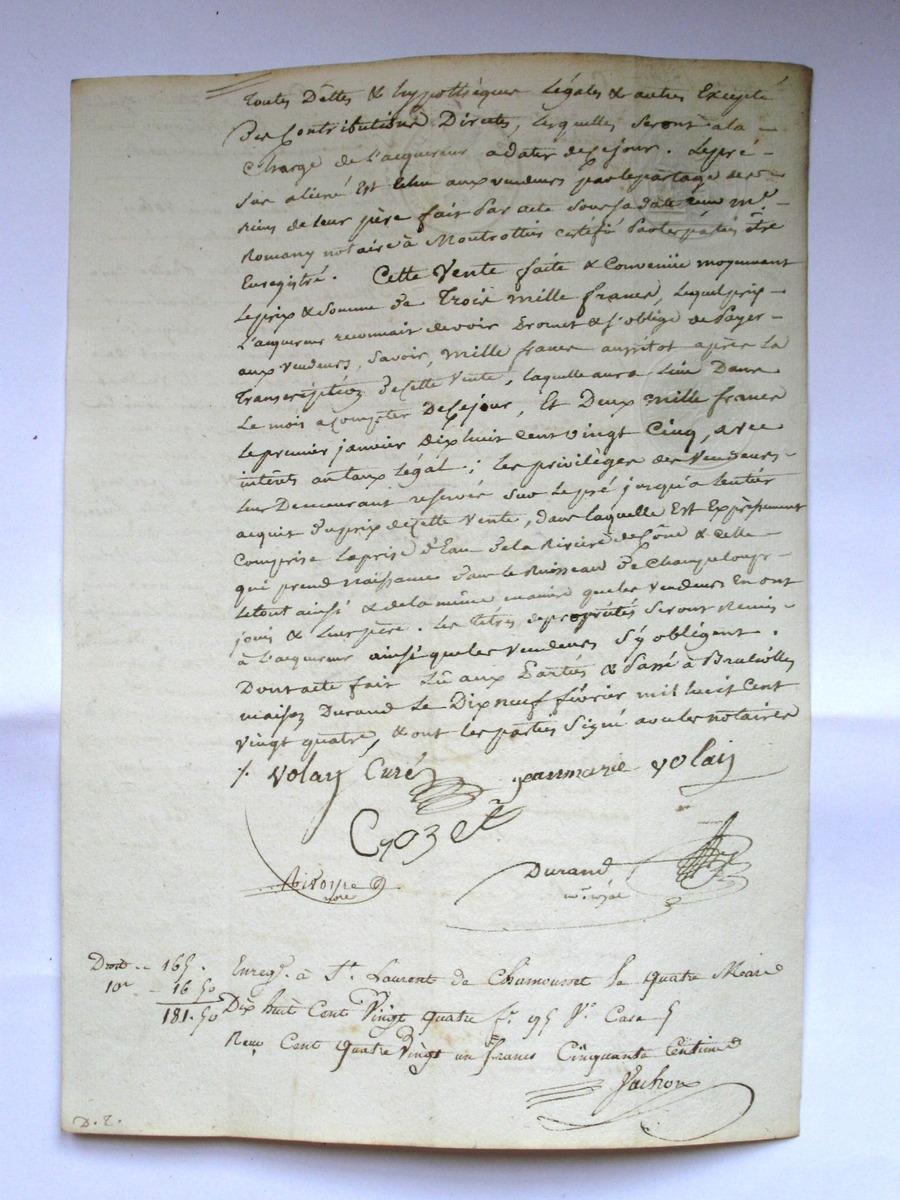 toutes Dettes & hypothèques légales & autres Excepté
Des Contributions Directes, lesquelles seront à la
Charge de l'acquereur a dater de ce jour. Le pré
sus aliéné Est Echu aux vendeurs par le partage des
biens de leur père fait par acte sous sa date reçu Me.
Romany notaire à Montrottier certifié par les parties être
Enregistré. Cette Vente faite & Convenüe moyennant
Le prix & somme de Trois mille francs, lequel prix
L'acquereur reconnait devoir Promet & s'oblige de Payer
aux vendeurs, Savoir, mille francs aussitot après la
Transcription de Cette Vente, laquelle aura lieu Dans
Le mois a compter De ce jour, Et Deux mille francs
Le premier janvier Dix huit Cent vingt Cinq, avec
intérêts au taux légal; Les privilèges des Vendeurs
Leur Demeurant réservés sur Le pré jusqu'a l'entier
acquit du prix de Cette Vente, dans laquelle Est Expressement
Comprise La prise d'Eau de la Rivière de & Celle
qui prend Naissance dans le Ruisseau de
Le tout ainsi & de la même manière que les vendeurs En ont
joui & leur père. Les titres de propriétés Seront Remis
à L'acquereur ainsi que les Vendeurs s'y obligent.
Dont acte fait Lu aux Parties & Passé à Brullioles
maison Durand Le Dix neuf février mil huit Cent
Vingt quatre, & ont les parties Signé avec les notaires
Volay Curé jean marie volay
Durand
Droit .. 165.
10e 16 50
181.50
Enregé. à St. Laurent de Chamousset le quatre Mars
Dix huit Cent Vingt quatre fo. 95 Vo. Case 5
Reçu Cent quatre Vingt un francs Cinquante Centimes
Vachon
D. 2.